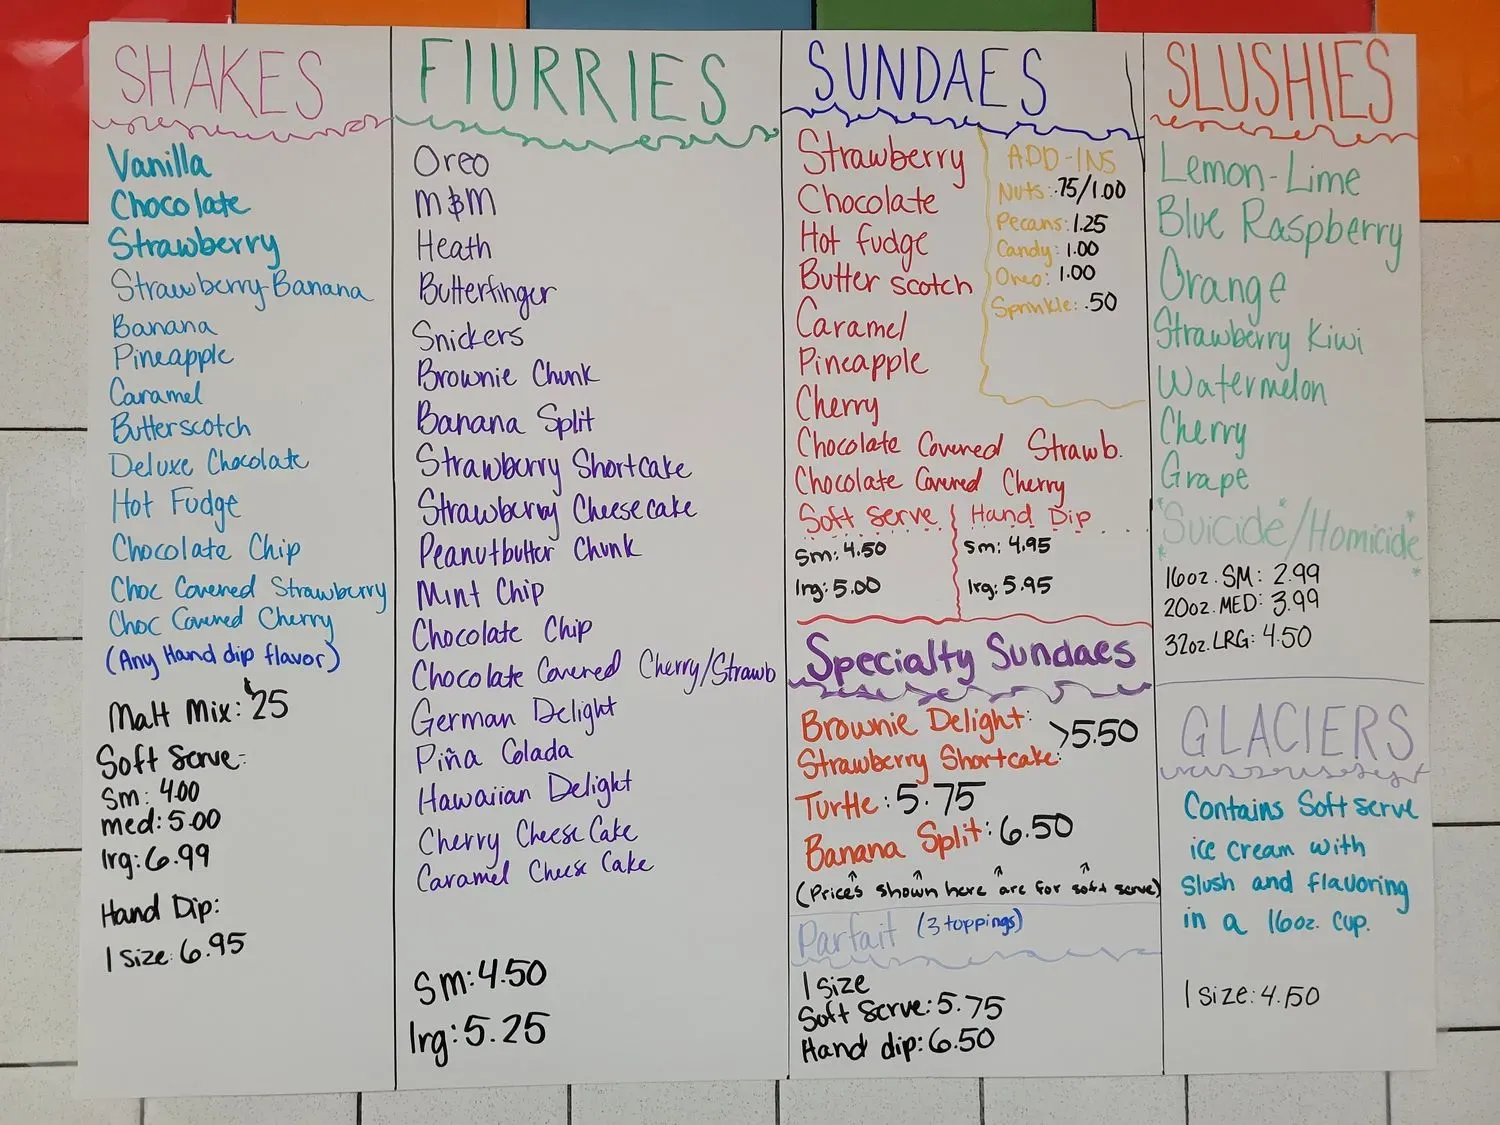 SHAKES
Vanilla
Chocolate
Strawberry
Strawberry-Banana
Banana
Pineapple
Caramel
Butterscotch
Deluxe Chocolate
Hot Fudge
Chocolate Chip
Choc Covered Strawberry
Choc Covered Cherry
(Any Hand dip flavor)
Malt Mix: $.25
Soft Serve-
Sm: 4.00
med: 5.00
lrg: 6.99
Hand Dip:
1 size: 6.95
FlURRIES
Oreo
M&M
Heath
Butterfinger
Snickers
Brownie Chunk
Banana Split
Strawberry Shortcake
Strawberry Cheesecake
Peanutbutter Chunk
Mint Chip
Chocolate Chip
Chocolate Covered Cherry/Strawb
German Delight
Piña Colada
Hawaiian Delight
Cherry Cheese Cake
Caramel Cheese Cake
Sm: 4.50
lrg: 5.25
SUNDAES
Strawberry
Chocolate
Hot fudge
Butterscotch
Caramel
Pineapple
Cherry
Chocolate Covered Strawb.
Chocolate Covered Cherry
ADD-INS
Nuts: .75/1.00
Pecans: 1.25
Candy: 1.00
Oreo: 1.00
Sprinkle: .50
Soft Serve
Sm: 4.50
lrg: 5.00
Hand Dip
Sm: 4.95
lrg: 5.95
Specialty Sundaes
Brownie Delight:
Strawberry Shortcake: >5.50
Turtle: 5.75
Banana Split: 6.50
(Prices shown here are for soft serve)
Parfait (3 toppings)
1 size
Soft Serve: 5.75
Hand dip: 6.50
SLUSHIES
Lemon-Lime
Blue Raspberry
Orange
Strawberry Kiwi
Watermelon
Cherry
Grape
*Suicide*/*Homicide*
16oz. SM: 2.99
20oz. MED: 3.99
32oz. LRG: 4.50
GLACIERS
Contains Soft serve
ice cream with
slush and flavoring
in a 16oz. cup.
1 size: 4.50